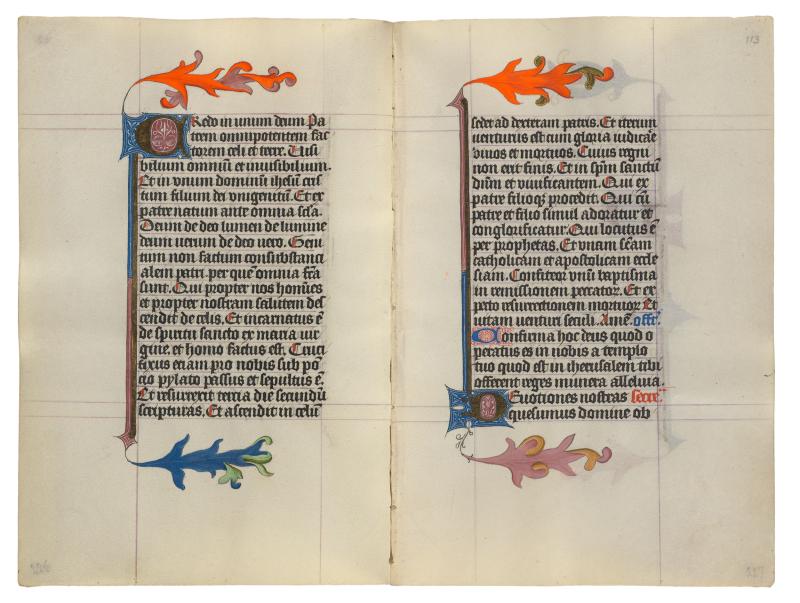 Credo in unum deum Pa
trem omnipotentem fac
torem celi et terre. Uisi
bilium omniū et inuisibilium.
Et in vnum dominū ihesū cris
tum filium dei vnigenitū. Et ex
patre natum ante omnia sc̄la.
Deum de deo lumen de lumine
deum uerum de deo uero. Geni
tum non factum consubstanci
alem patri. per quē omnia fc̄a
sunt. Qui propter nos homīes
et propter nostram salutem des
cendit de celis. Et incarnatus ē
de spiritu sancto ex maria uir
gine. et homo factus est. Cruci
fixus eciam pro nobis sub pō
cio pylato passus et sepultus ē.
Et resurrexit tercia die secundū
scripturas. Et ascendit in celū
113
sedet ad dexteram patris. Et iterum
uenturus est cum gloria iudicāe
viuos et mortuos. Cuius regni
non erit finis. Et in sp̄m sanctū
dn̄m et viuificantem. Qui ex
patre filioqꝫ procedit. Qui cū
patre et filio simul adoratur et
conglorificatur. Qui locutus ē
per prophetas. Et vnam sc̄am
catholicam et apostolicam eccle
siam. Confiteor vnū baptisma
in remissionem peccatoꝝ. Et ex
pecto resurrectionem mortuoꝝ Et
uitam uenturi seculi. Amē. offr̄.
Confirma hoc deus quod o
peratus es in nobis a templo
tuo quod est in iherusalem tibi
offerent reges munera alleluia.
Deuotiones nostras secre.
quesumus domine ob
226
227